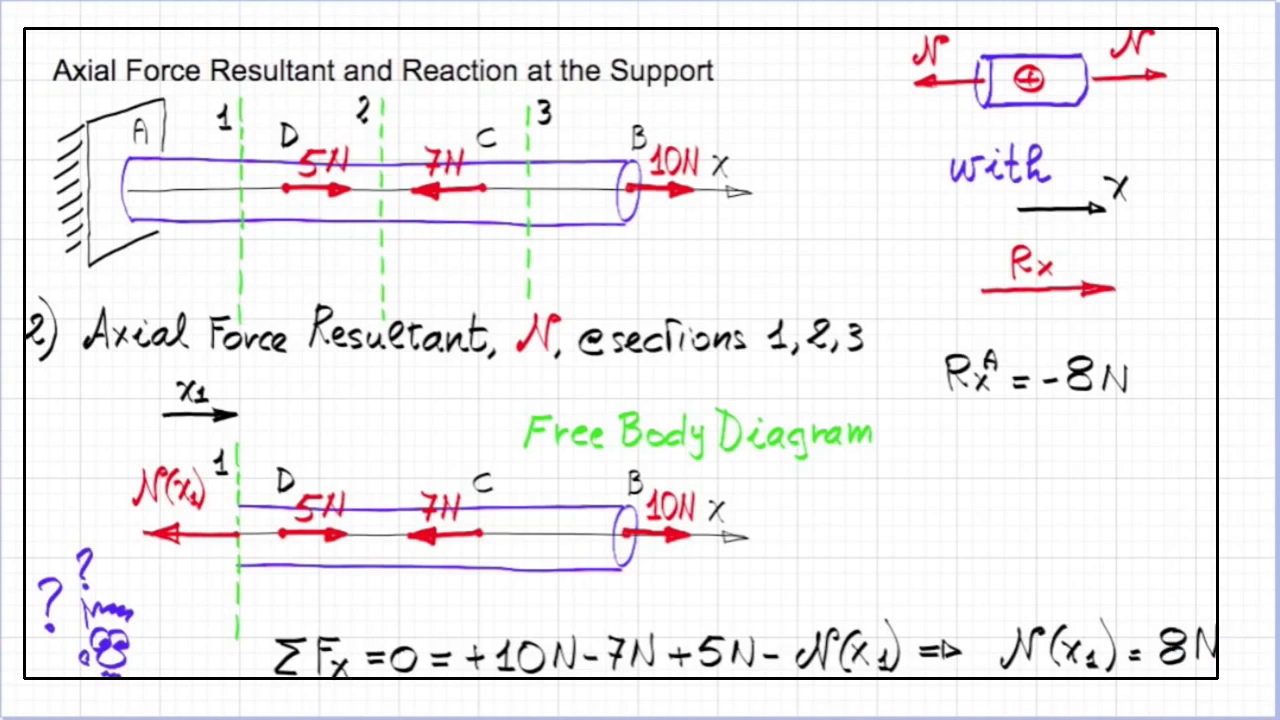 Axial Force Resultant and Reaction at the Support
N N
1 2 3
A D C B
5N 7N 10N x
with
x
Rx
2) Axial Force Resultant, N, @sections 1,2,3
RxA = -8N
x1
Free Body Diagram
1 D C B
N(x1) 5N 7N 10N x
? ?
ΣFx = 0 = +10N-7N+5N- N(x1) => N(x1) = 8N